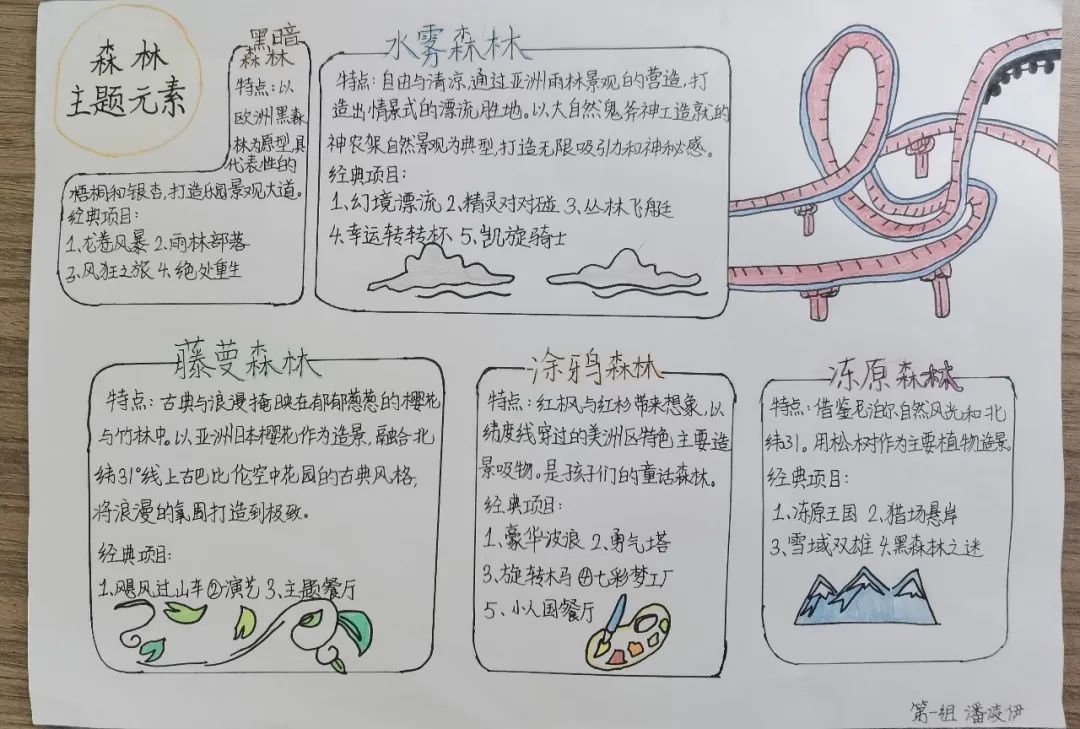 森林
主题元素
黑暗
森林
特点：以
欧洲黑森
林为原型，具
代表性的
梧桐和银杏，打造乐园景观大道。
经典项目：
1、龙卷风暴 2、雨林部落
3、风狂之旅 4、绝处重生
水雾森林
特点：自由与清凉，通过亚洲雨林景观的营造，打
造出情景式的漂流胜地。以大自然鬼斧神工造就的
神农架自然景观为典型，打造无限吸引力和神秘感。
经典项目：
1、幻境漂流 2、精灵对对碰 3、丛林飞艇
4、幸运转转杯 5、凯旋骑士
藤蔓森林
特点：古典与浪漫掩映在郁郁葱葱的樱花
与竹林中。以亚洲日本樱花作为造景，融合北
纬31°线上古巴比伦空中花园的古典风格，
将浪漫的氛围打造到极致。
经典项目：
1、飓风过山车②演艺 3、主题餐厅
涂鸦森林
特点：红枫与红杉带来想象，以
纬度线穿过的美洲区特色主要造
景吸物。是孩子们的童话森林。
经典项目：
1、豪华波浪 2、勇气塔
3、旋转木马 ④七彩梦工厂
5、小人国餐厅
冻原森林
特点：借鉴尼泊尔自然风光和北
纬31。用松树作为主要植物造景。
经典项目：
1、冻原王国 2、猎场悬岸
3、雪域双雄 4、黑森林之迷
第一组 潘凌伊